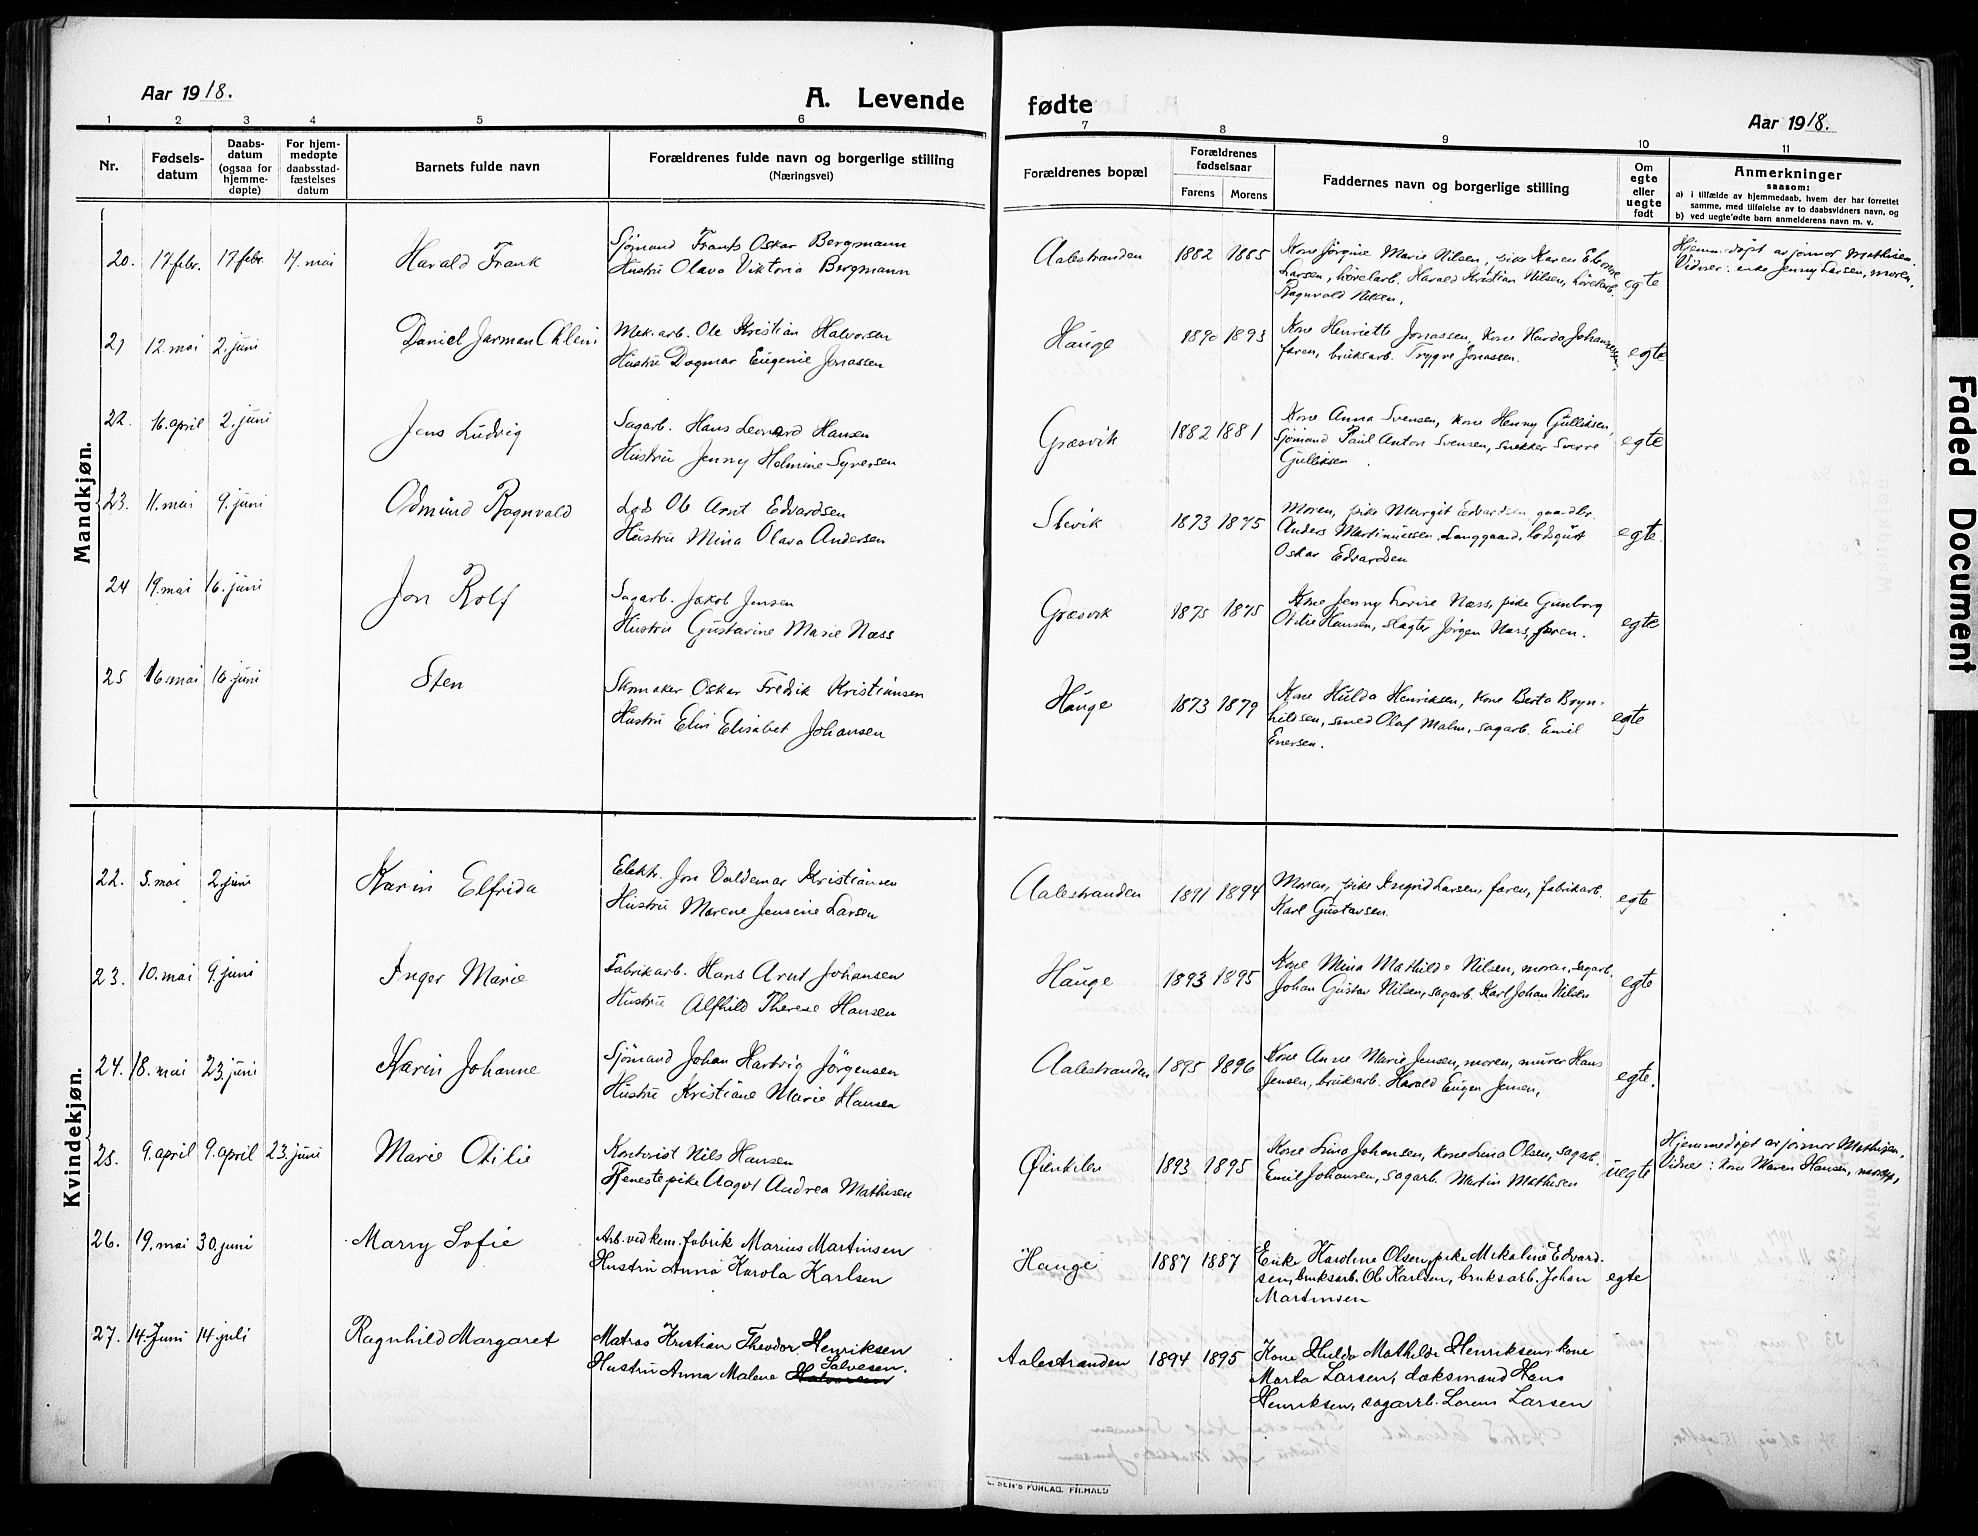 Aar 1918.
A. Levende
fødte
Aar 1918.
1 2 3 4 5 6 7 8 9 10 11
Nr.
Fødsels-
datum
Daabs-
datum
(ogsaa for
hjemme-
døpte)
For hjem-
medøpte
daabsstad-
fæstelses
datum
Barnets fulde navn
Forældrenes fulde navn og borgerlige stilling
(Næringsvei)
Forældrenes bopæl
Forældrenes
fødselsaar
Farens Morens
Faddernes navn og borgerlige stilling
Om
egte
eller
uegte
født
Anmerkninger
saasom:
a) i tilfælde av hjemmedaab, hvem der har forrettet
samme, med tilføielse av to daabsvidners navn, og
b) ved uegte fødte barn anmelderens navn m. v.
Mandkjøn.
20. 17 febr. 17 febr. 17. mai Harald Frank
Sjømand Frants Oskar Bergmann
Hustru Olava Viktoria Bergmann
Aalestranden 1882 1885
Kone Jørgine Marie Nilsen, pike Karen Elenore
Larsen, hövelarb. Harald Kristian Nilsen, hövelarb.
Ragnvald Nilsen.
egte
Hjemmedøpt av jormor Mathisen.
Vidner: enke Jenny Larsen, moren.
21 12. mai 2. juni Daniel Jarman Chlein
Mek. arb. Ole Kristian Halvorsen
Hustru Dagmar Eugenie Jonassen
Hauge 1890 1893
Kone Henriette Jonassen, kone Harda Johannesen,
faren, bruksarb. Trygve Jonassen.
egte
22. 16. april 2. juni Jens Ludvig
Sagarb. Hans Leonard Hansen
Hustru Jenny Helmine Syversen
Græsvik 1882 1881
Kone Anna Svensen, kone Henny Gulliksen,
Sjömand Paul Anton Svensen, snekker Sverre
Gulliksen.
egte
23. 11. mai 9. juni Odmund Ragnvald
Lods Ole Arnt Edvardsen
Hustru Mina Olava Andersen
Slevik 1873 1875
Moren, pike Margit Edvardsen, gaardbr.
Anders Martinuissen Langgaard, lodsgut
Oskar Edvardsen
egte.
24 19. mai 16. juni Jon Rolf
Sagarb. Jakob Jensen
Hustru Gustavine Marie Næss
Græsvik 1875 1875
Kone Jenny Lovise Næss, pike Gunborg
Otilie Hansen, slagter Jörgen Næss, faren.
egte
25 16. mai 16. juni Sten
Skomaker Oskar Fredrik Kristiansen
Hustru Elin Elisabet Johansen
Hauge 1873 1879
Kone Hulda Henriksen, kone Berta Bryn-
hildsen, smed Olaf Malm, sagarb. Emil
Enersen.
egte
Kvindekjøn.
22. 5. mai 2. juni Karin Elfrida
Elektr. Jon Valdemar Kristiansen
Hustru Marene Jensine Larsen
Aalestranden 1891 1894
Moren, pike Ingrid Larsen, faren, fabrikarb.
Karl Gustavsen.
egte
23. 10. mai 9. juni Inger Marie
Fabrikarb. Hans Arnt Johansen
Hustru Alfhild Therese Hansen
Hauge 1893 1895
Kone Mina Mathilde Nilsen, moren, sagarb.
Johan Gustav Nilsen, sagarb. Karl Johan Nilsen
egte
24. 18. mai 23. juni Karin Johanne
Sjömand Johan Hartvig Jörgensen
Hustru Kristiane Marie Hansen
Aalestranden 1895 1896
Kone Anne Marie Jensen, moren, murer Hans
Jensen, bruksarb. Harald Eugen Jensen,
egte.
25. 9. april 9. april 23. juni Marie Otilie
Kontorist Nils Hansen
Tjenestepike Aagot Andrea Mathisen
Øienkilen 1893 1895
Kone Lina Johansen, kone Lina Olsen, sagarb.
Emil Johansen, sagarb. Martin Mathisen
uegte
Hjemmedöpt av jormor Mathisen,
Vidner: kone Maren Hansen,
26. 19. mai 30. juni Marry Sofie
Arb. ved kem. fabrik Marius Martinsen
Hustru Anna Karola Karlsen
Hauge 1887 1887
Enke Karoline Olsen, pike Mikaline Edvard-
sen, bruksarb. Ole Karlsen, bruksarb. Johan
Martinsen
egte
27. 14. Juni 14 juli Ragnhild Margaret
Matros Kristian Theodor Henriksen
Hustru Anna Malene Salvesen.
Aalestranden 1894 1895
Kone Hulda Mathilde Henriksen, kone
Marta Larsen, dæksmand Hans
Henriksen, sagarb. Lorens Larsen
FORLAG, FR.HALD
Faded Document